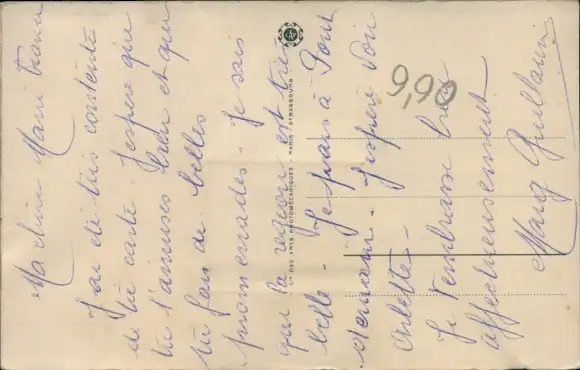 Ma chère Marie
J'ai été très contente
de ta carte. J'espère que
tu t'amuses bien et que
tu fais de belles
promenades. Je sais
que la région est très
belle. Je pars à Pont
demain. J'espère voir
Arlette.
Je t'embrasse bien
affectueusement
Marg
9,90
Cie DES ARTS PHOTOMÉCANIQUES - PARIS - STRASBOURG